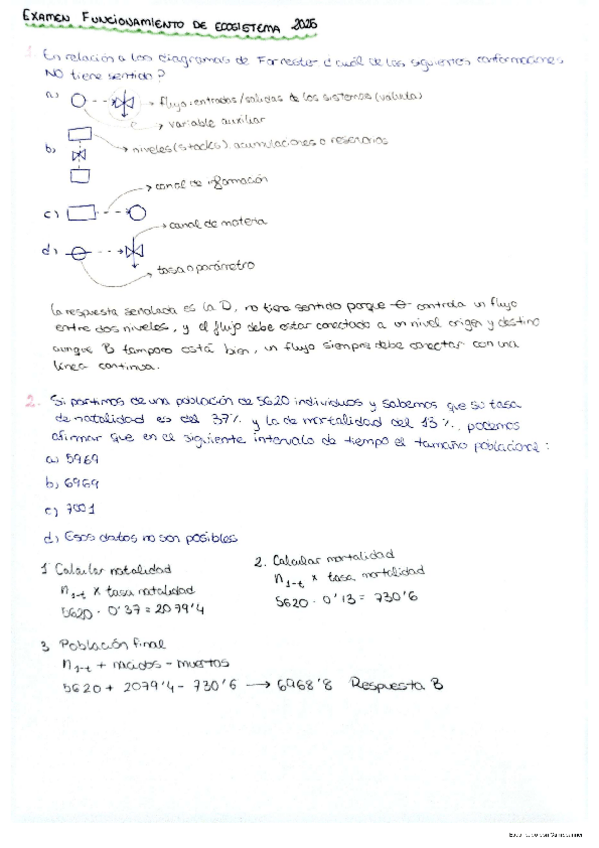 EXAMEN FUNCIONAMIENTO DE ECOSISTEMA 2025
1. En relación a los diagramas de Forrester ¿cuál de las siguientes conformaciones
NO tiene sentido?
a)
→ flujo, entradas/salidas de los sistemas (válvula)
→ variable auxiliar
b)
→ niveles (stocks), acumulaciones o reservorios
→ canal de información
c)
→ canal de materia
d)
→ tasa o parámetro
La respuesta señalada es la D, no tiene sentido porque controla un flujo
entre dos niveles, y el flujo debe estar conectado a un nivel origen y destino
aunque B tampoco está bien, un flujo siempre debe conectar con una
línea continua.
2. Si partimos de una población de 5620 individuos y sabemos que su tasa
de natalidad es del 37% y la de mortalidad del 13%, podemos
afirmar que en el siguiente intervalo de tiempo el tamaño poblacional:
a) 5969
b) 6969
c) 7001
d) Esos datos no son posibles
1. Calcular natalidad
n1-t × tasa natalidad
5620 · 0'37 = 2079'4
2. Calcular mortalidad
n1-t × tasa mortalidad
5620 · 0'13 = 730'6
3. Población final
n1-t + nacidos - muertos
5620 + 2079'4 - 730'6 → 6968'8 Respuesta B